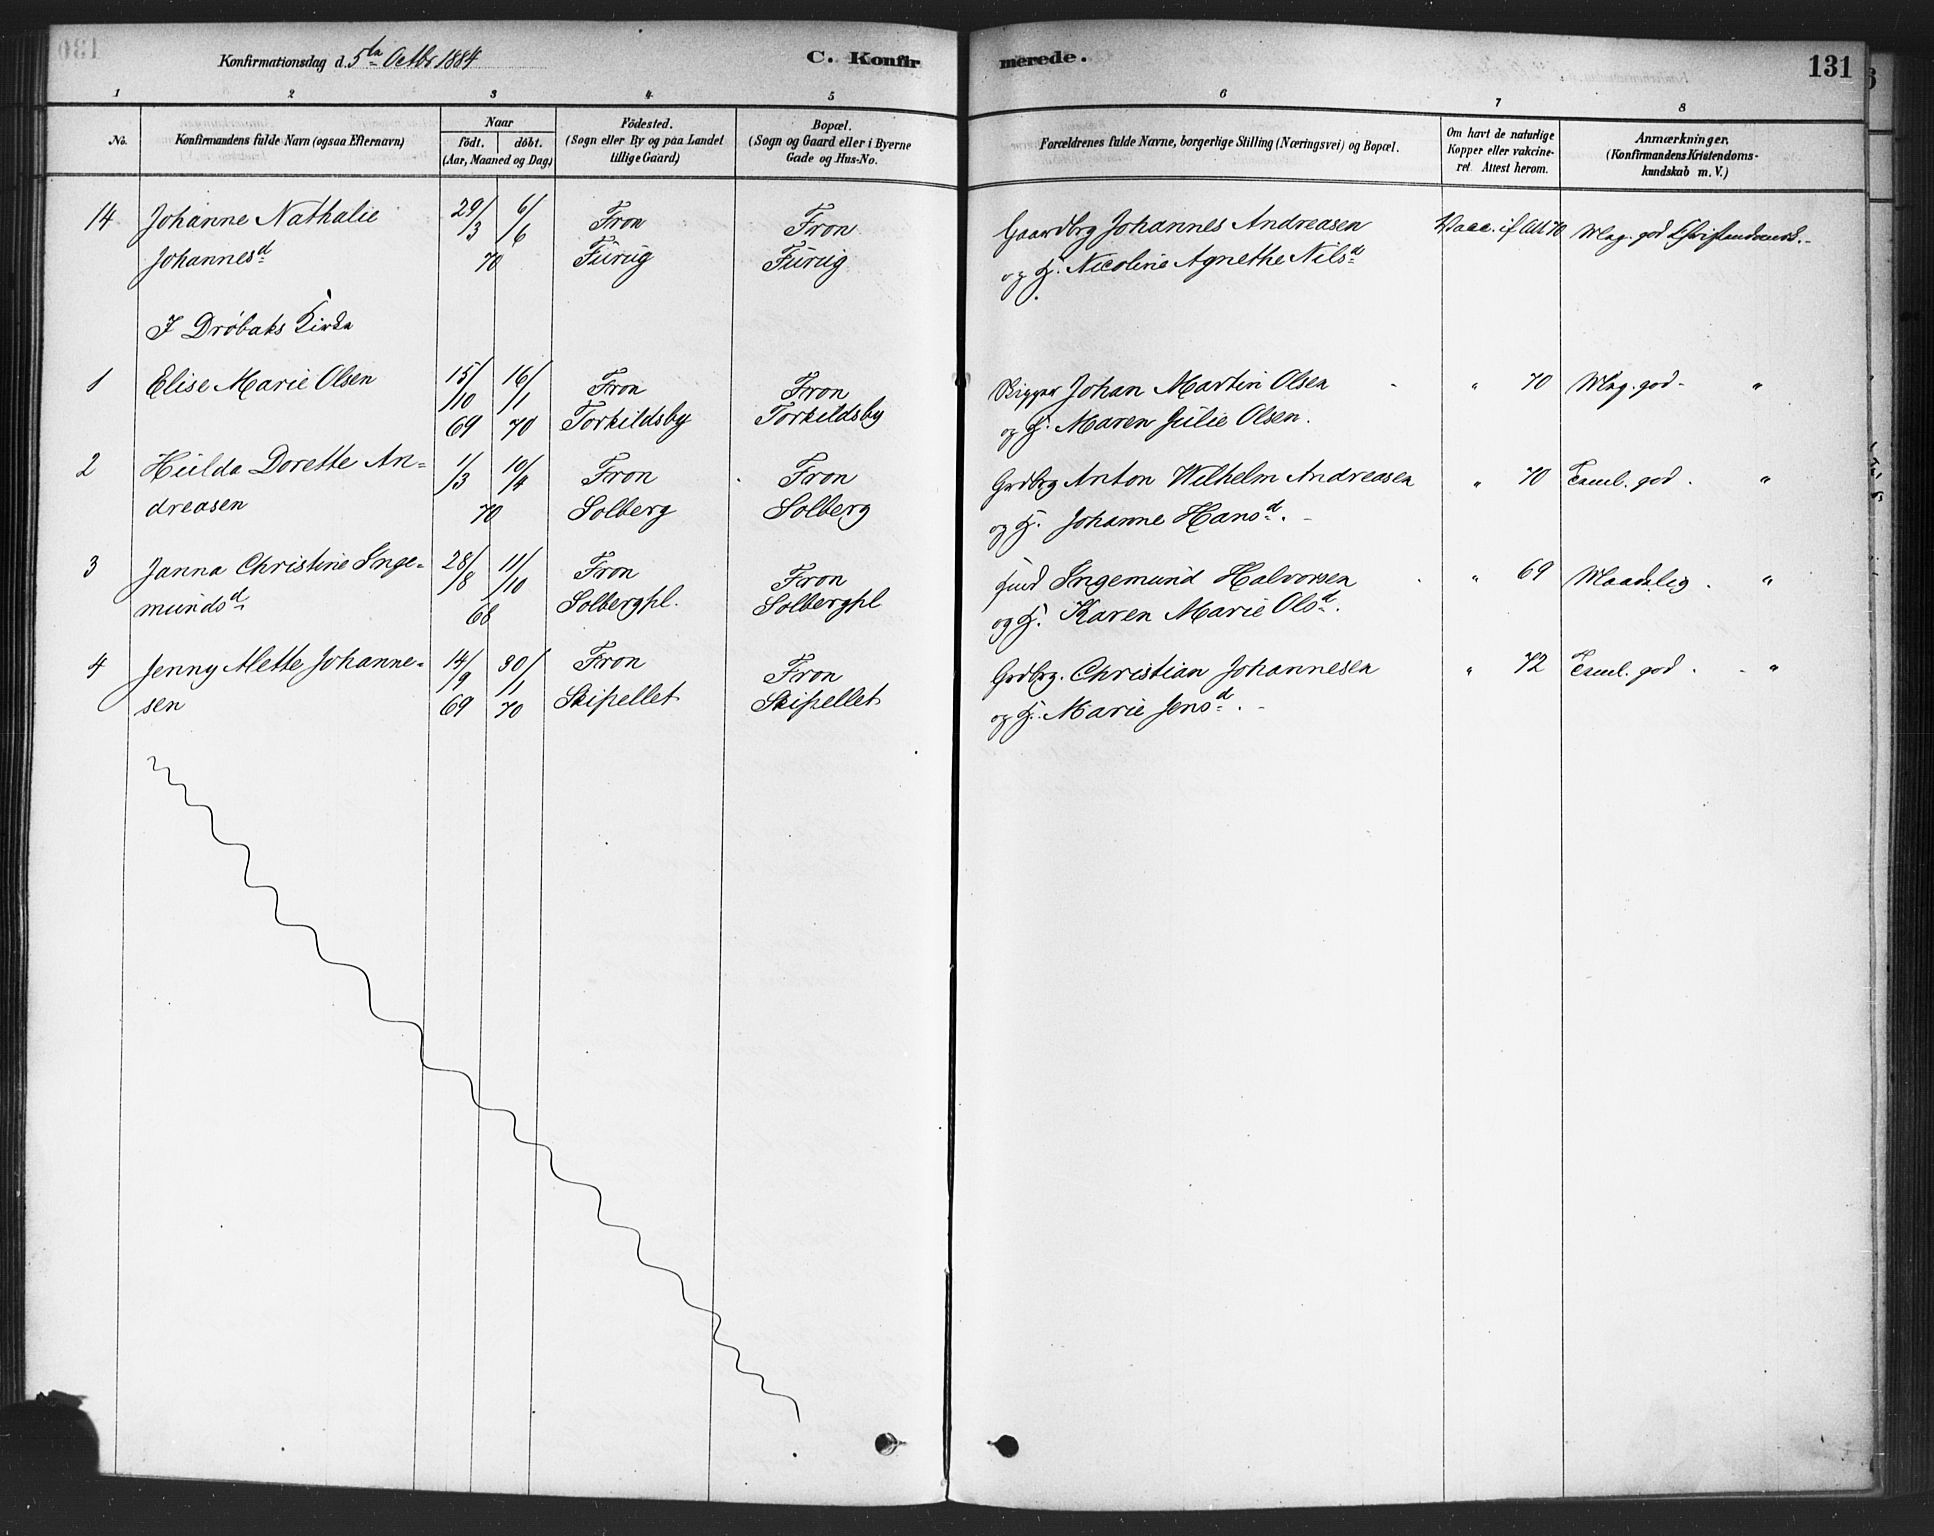 Konfirmationsdag d. 5te Octbr 1884
C. Konfir
merede.
131
1 2 3 4 5 6 7 8
No.
Konfirmandens fulde Navn (ogsaa Efternavn)
Naar
födt. döbt.
(Aar, Maaned og Dag)
Födested.
(Sogn eller By og paa Landet
tillige Gaard)
Bopæl.
(Sogn og Gaard eller i Byerne
Gade og Hus-No.
Forældrenes fulde Navne, borgerlige Stilling (Næringsvei) og Bopæl.
Om havt de naturlige
Kopper eller vakcine-
ret. Attest herom.
Anmærkninger.
(Konfirmandens Kristendoms-
kundskab m. V.)
14 Johanne Nathalie 29/3 6/6 Fron Fron Gaardbrg Johannes Andreasen Vacc. if Att 70 Mag. god
Johannesd 70 Furug Furug og H. Nicoline Agnethe Nilsd
I Drøbaks Kirke
1 Elise Marie Olsen 15/10 16/1 Fron Fron Johan Martin Olsen " 70 Mag. god - "
69 70 Torkildsby Torkildsby og H. Maren Julie Olsen.
2 Hulda Dorette An= 1/3 10/4 Fron Fron Grdbrg Anton Wilhelm Andreasen " 70 god . "
dreasen 70 Solberg Solberg og H. Johanne Hansd. -
3 Janna Christine Inge= 28/8 11/10 Fron Fron Ingemund Halvorsen " 69 Maadelig . "
mundsd 68 Solbergpl. Solbergpl og H. Karen Marie Olsd.
4 Jenny Alette Johanne= 14/9 30/1 Fron Fron Grdbrg. Christian Johannesen " 72 god . - "
sen 69 70 Skipellet Skipellet og H. Marie Jensd. -